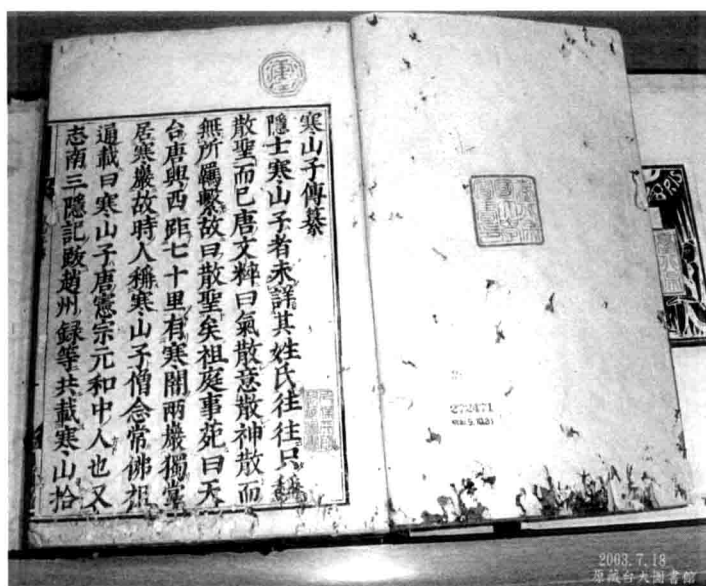 寒山子傳纂
隱士寒山子者未詳其姓氏往往只稱
散聖而已唐文粹曰氣散意散神散而
無所羈繫故曰散聖矣祖庭事苑曰天
台唐興西距七十里有寒闇兩巖獨掌
居寒巖故時人稱寒山子僧念常佛祖
通載曰寒山子唐憲宗元和中人也又
志南三隱記跋趙州錄等共載寒山拾
272471
PARIS
2003.7.18
原藏台大圖書館